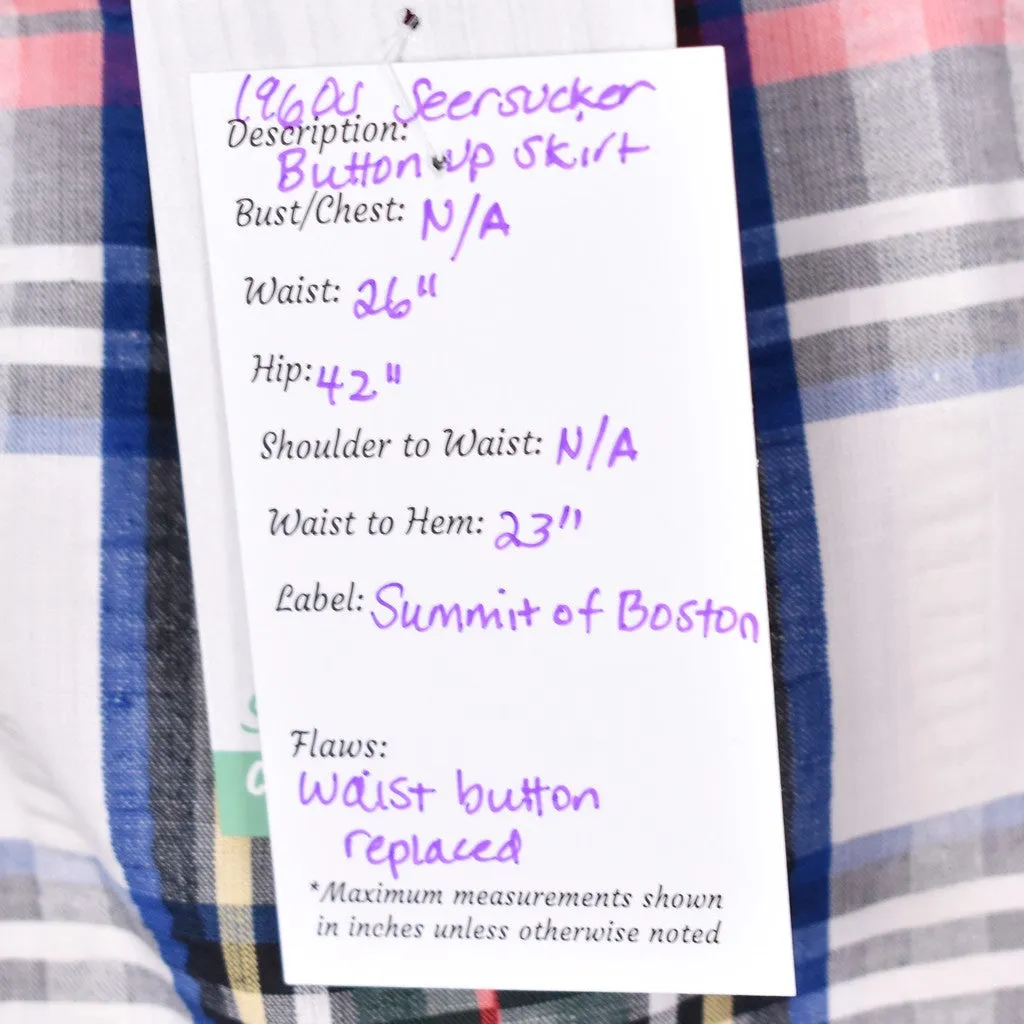 1960s Seersucker
Description:
Button up skirt
Bust/Chest: N/A
Waist: 26"
Hip: 42"
Shoulder to Waist: N/A
Waist to Hem: 23"
Label: Summit of Boston
Flaws:
Waist button
replaced
*Maximum measurements shown
in inches unless otherwise noted